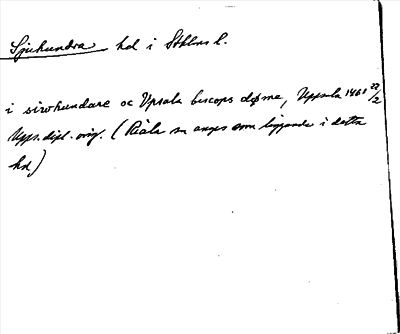 Sjuhundra hd i Sthlms l.
i siwhundare oc Upsala biscops døme, Uppsala 1461 22/2
Upps. dipl. orig. (Riàla sn anges som liggande i detta
hd)